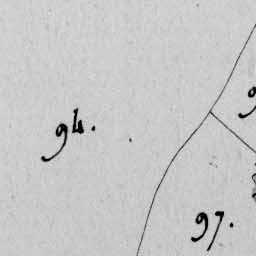 94.
97.